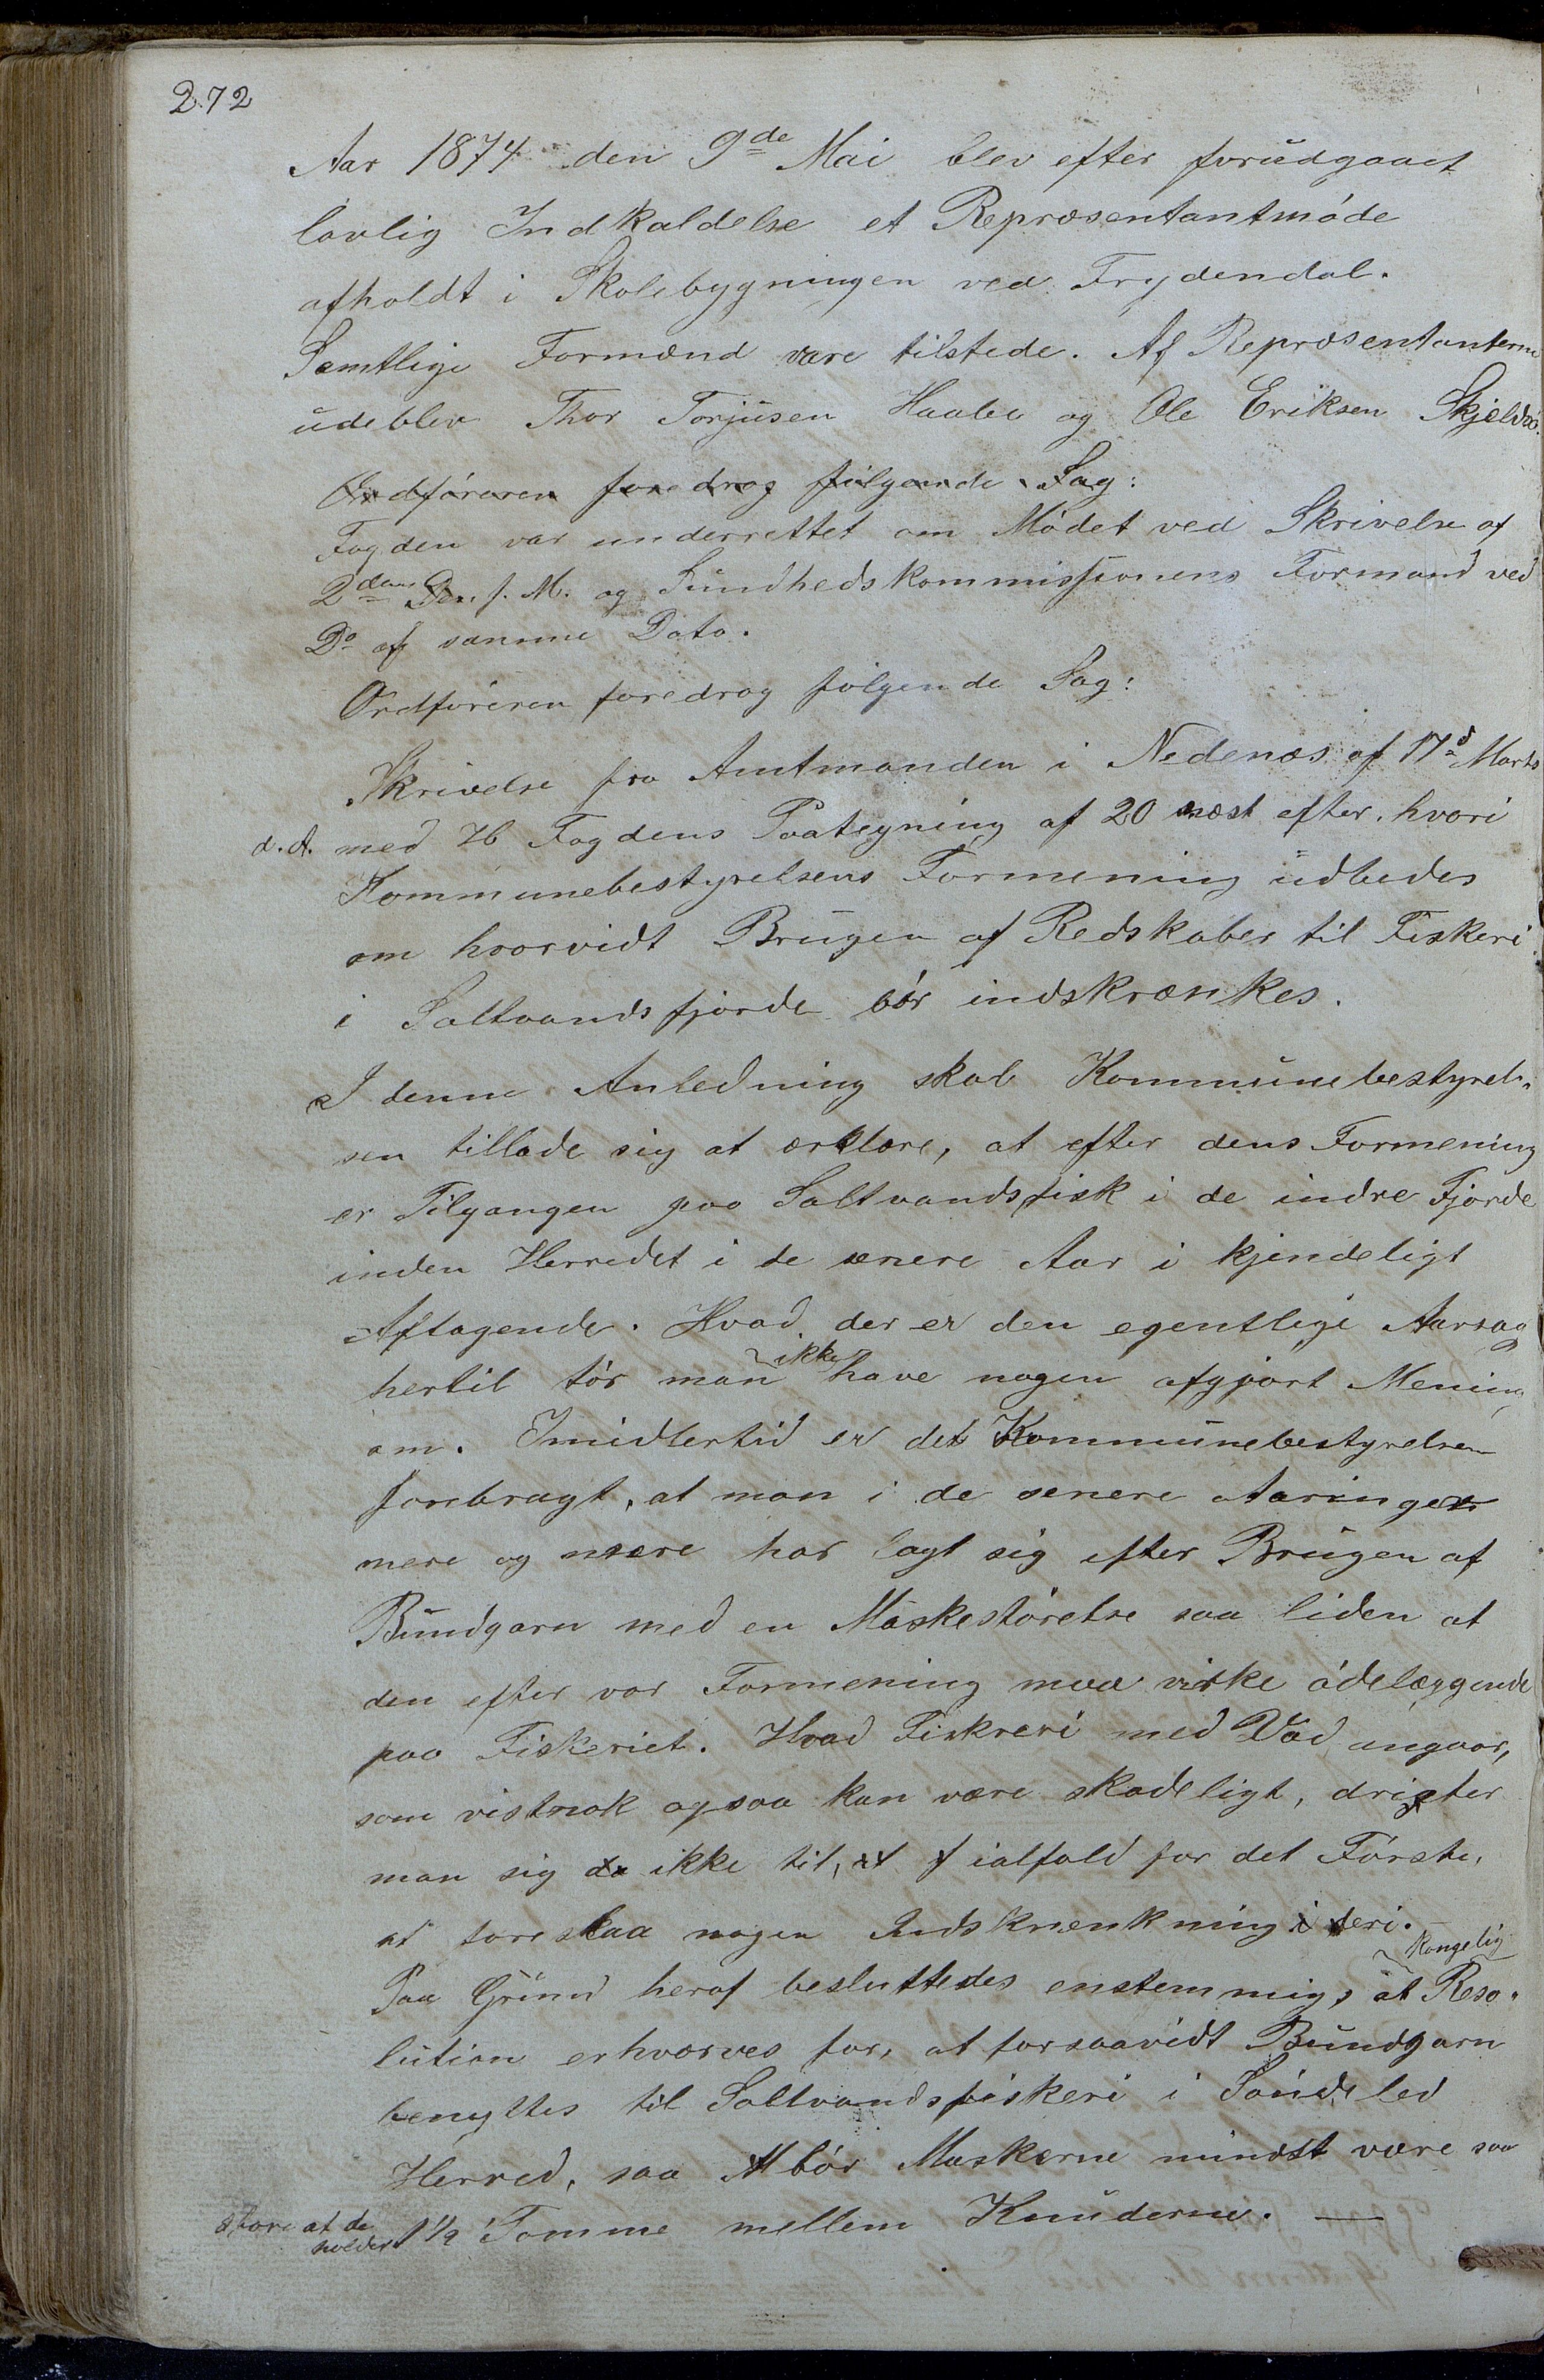 272
Aar 1874 den 9de Mai blev efter forudgaaet
lovlig Indkaldelse et Repræsentantmøde
afholdt i Skolebygningen ved Frydendal.
Samtlige Formænd vare tilstede. Af Repræsentanterne
udeblev Thor Torjusen Haabe og Ole Eriksen Skjeldsø.
Ordføreren foredrog følgende Sag:
Fogden var underrettet om Mødet ved Skrivelse af
2den f. M. og Sundhedskommissionens Formand ved
Do af samme Dato.
Ordføreren foredrog følgende Sag:
Skrivelse fra Amtmanden i Nedenæs af 17d Marts
d. A. med Hb Fogdens Paategning af 20 næst efter, hvori
Kommunebestyrelsens Formening udbedes
om hvorvidt Brugen af Redskaber til Fiskeri
i Saltvandsfjorde bør indskrænkes.
I denne Anledning skal Kommunebestyrel-
sen tillade sig at erklære, at efter dens Formening
er Tilgangen paa Saltvandsfisk i de indre Fjorde
inden Herredet i de senere Aar i kjendeligt
Aftagende. Hvad der er den egentlige Aarsag
hertil tør man ikke have nogen afgjort Mening
om. Imidlertid er det Kommunebestyrelsen
forebragt, at man i de senere Aaringer
mere og mere har lagt sig efter Brugen af
Bundgarn med en Maskestørelse saa liden at
den efter vor Formening maa virke ødelæggende
paa Fiskeriet. Hvad Fiskreri med Vad angaar,
som vistnok ogsaa kan være skadeligt, drister
man sig ikke til, ialfald for det Første,
at foreslaa nogen Indskrænkning deri.
Paa Grund heraf besluttedes enstemmig, at kongelig Reso-
lution erhverves for, at forsaavidt Bundgarn
benyttes til Saltvandsfiskeri i Søndeled
Herred, saa bør Maskerne mindst være saa
store at de holder 1½ Tomme mellem Knuderne. —